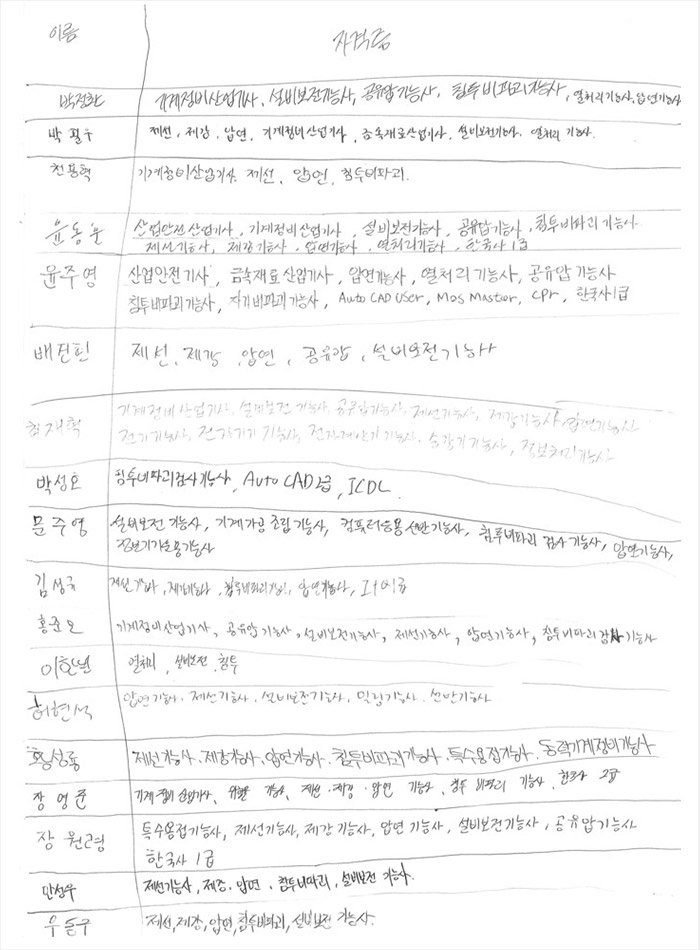 이름 자격증
박정환 기계정비산업기사, 설비보전기능사, 공유압기능사, 침투비파괴기능사, 열처리기능사, 압연기능사
박필수 제선, 제강, 압연, 기계정비산업기사, 금속재료산업기사, 설비보전기능사, 열처리기능사.
천용혁 기계정비산업기사, 제선, 압연, 침투비파괴.
윤동훈 산업안전산업기사, 기계정비산업기사, 설비보전기능사, 공유압기능사, 침투비파괴기능사
제선기능사, 제강기능사, 압연기능사, 열처리기능사, 한국사 1급
윤주영 산업안전기사, 금속재료산업기사, 압연기능사, 열처리기능사, 공유압기능사
침투비파괴기능사, 자기비파괴기능사, Auto CAD User, Mos Master, CPr, 한국사1급
배진힌 제선, 제강, 압연, 공유압, 설비보전기능사
최재혁 기계정비산업기사, 설비보전기능사, 공유압기능사, 제선기능사, 제강기능사, 압연기능사
전기기능사, 전자기기기능사, 전자계산기기능사, 승강기기능사, 정보처리기능사
박성호 침투비파괴검사기능사, Auto CAD 2급, ICDL
문주영 설비보전기능사, 기계가공조립기능사, 컴퓨터응용선반기능사, 침투비파괴검사기능사, 압연기능사,
김성국 제선기능사, 제강기능사, 침투비파괴기능사, 압연기능사,
홍준오 기계정비산업기사, 공유압기능사, 설비보전기능사, 제선기능사, 압연기능사, 침투비파괴검사기능사
열처리, 설비보전, 침투
허현석 압연기능사, 제선기능사, 설비보전기능사, 밀링기능사, 선반기능사
황성룡 제선기능사, 제강기능사, 압연기능사, 침투비파괴기능사, 특수용접기능사, 동력기계정비기능사
장영준 기계정비산업기사, 위험물 기능사, 제선·제강·압연 기능사, 침투비파괴 기능사, 한국사 2급
장원령 특수용접기능사, 제선기능사, 제강기능사, 압연기능사, 설비보전기능사, 공유압기능사
한국사 1급
안성우 제선기능사, 제강, 압연, 침투비파괴, 설비보전 기능사.
우동구 제선, 제강, 압연, 침투비파괴, 설비보전 기능사.